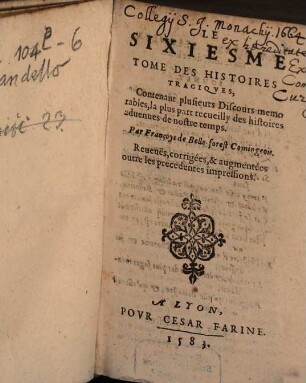 104 P-6
andello
23
Collegij S. J. Monachij. 1664
LE
SIXIESME
TOME DES HISTOIRES
TRAGIQVES,
Contenant plusieurs Discours memo
rables, la plus part recueilly des histoires
aduenues de nostre temps.
Par Françoys de Belle-forest Comingeois.
Reueuës, corrigées, & augmentées
outre les precedentes impressions.
A LYON,
POVR CESAR FARINE.
1583.